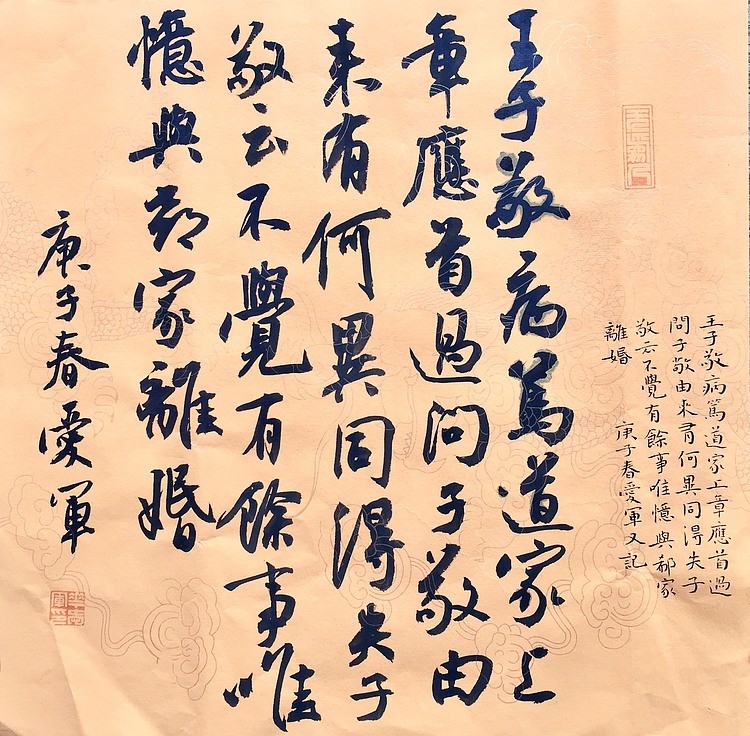 王子敬病篤道家上
章應首過問子敬由
来有何異同得失子
敬云不覺有餘事唯
憶與郗家離婚
庚子春愛軍
王子敬病篤道家上章應首過
問子敬由来有何異同得失子
敬云不覺有餘事唯憶與郗家
離婚 庚子春愛軍又記